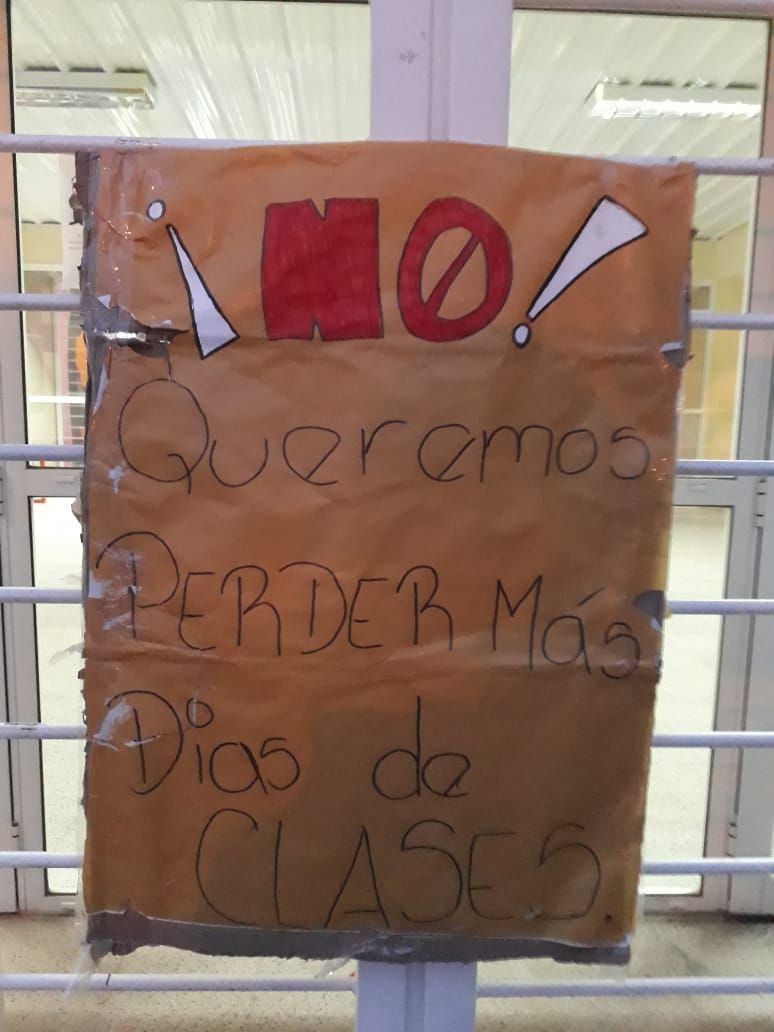 ¡NO!
Queremos
PERDER Más
Dias de
CLASES.